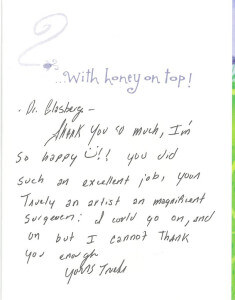 ...With honey on top!
- Dr. Glasberg -
Thank you so much, I'm
so happy !! you did
such an excellent job, your
Truely an artist an magnificent
Surgeon: I could go on, and
on but I cannot Thank
you enough
Yours Truely